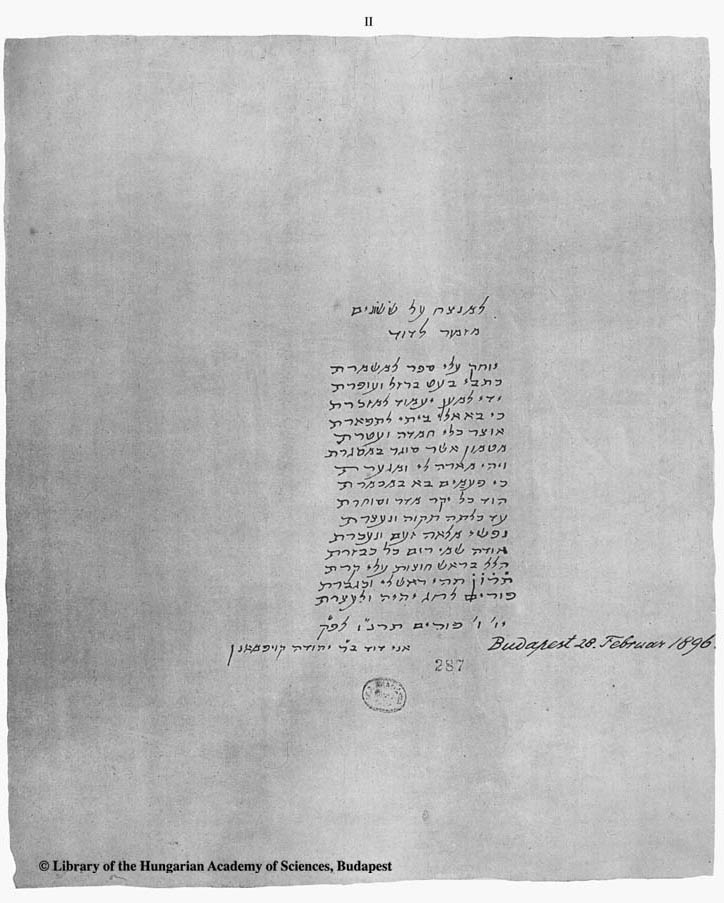 II
למנצח על ששונים
מזמור לדוד
יוחק עלי ספר למשמרת
כתבי בעט ברזל ועופרת
ידי למען יעמוד למזכרת
כי בא אלי ביתי לתפארת
אוצר כלי חמדה ועטרת
מטמון אשר סוגר במסגרת
ויהי מארה לי ומגערת
כי פעמים בא במכמרת
הוד כל יקר מדר וסוחרת
עד כלתה תקוה ונעצרת
נפשי מלאה זעם ונעכרת
אודה שמי רום כל כבזרת
הלל בראש חוצות עלי קרת
תרון תהי ראש לי וכגברת
פורים לחג יהיה ולעצרת
יו' ו' פורים תרנ"ו לפ"ק
אני דוד ב"ר יהודה קויפמאנן
Budapest 28. Februar 1896.
287
© Library of the Hungarian Academy of Sciences, Budapest